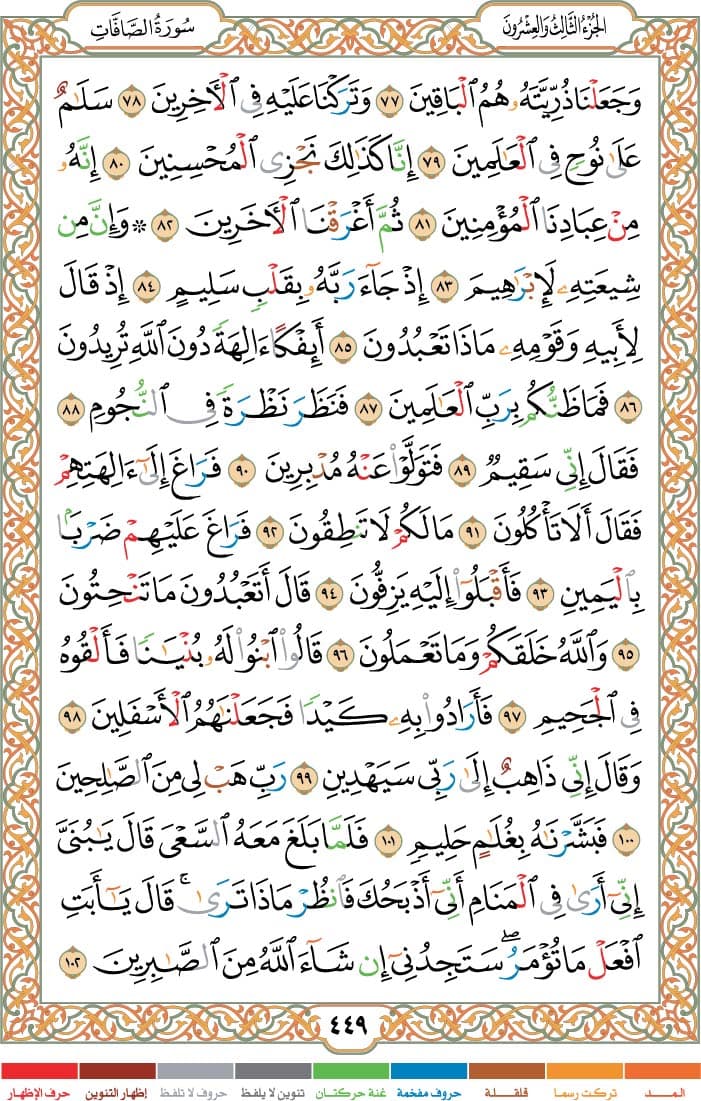 الجُزْءُ الثَّالِثُ وَالعِشْرُونَ
سُورَةُ الصَّافَّاتِ
وَجَعَلْنَا ذُرِّيَّتَهُۥ هُمُ ٱلْبَاقِينَ ٧٧ وَتَرَكْنَا عَلَيْهِ فِي ٱلْأَخِرِينَ ٧٨ سَلَٰمٌ
عَلَىٰ نُوحٍ فِي ٱلْعَٰلَمِينَ ٧٩ إِنَّا كَذَٰلِكَ نَجْزِي ٱلْمُحْسِنِينَ ٨٠ إِنَّهُۥ
مِنْ عِبَادِنَا ٱلْمُؤْمِنِينَ ٨١ ثُمَّ أَغْرَقْنَا ٱلْأَخَرِينَ ٨٢ ۞ وَإِنَّ مِن
شِيعَتِهِۦ لَإِبْرَٰهِيمَ ٨٣ إِذْ جَآءَ رَبَّهُۥ بِقَلْبٍ سَلِيمٍ ٨٤ إِذْ قَالَ
لِأَبِيهِ وَقَوْمِهِۦ مَاذَا تَعْبُدُونَ ٨٥ أَئِفْكًا ءَالِهَةً دُونَ ٱللَّهِ تُرِيدُونَ
٨٦ فَمَا ظَنُّكُم بِرَبِّ ٱلْعَٰلَمِينَ ٨٧ فَنَظَرَ نَظْرَةً فِي ٱلنُّجُومِ ٨٨
فَقَالَ إِنِّي سَقِيمٌ ٨٩ فَتَوَلَّوْا۟ عَنْهُ مُدْبِرِينَ ٩٠ فَرَاغَ إِلَىٰٓ ءَالِهَتِهِمْ
فَقَالَ أَلَا تَأْكُلُونَ ٩١ مَا لَكُمْ لَا تَنطِقُونَ ٩٢ فَرَاغَ عَلَيْهِمْ ضَرْبًۢا
بِٱلْيَمِينِ ٩٣ فَأَقْبَلُوٓا۟ إِلَيْهِ يَزِفُّونَ ٩٤ قَالَ أَتَعْبُدُونَ مَا تَنْحِتُونَ
٩٥ وَٱللَّهُ خَلَقَكُمْ وَمَا تَعْمَلُونَ ٩٦ قَالُوا۟ ٱبْنُوا۟ لَهُۥ بُنْيَٰنًا فَأَلْقُوهُ
فِي ٱلْجَحِيمِ ٩٧ فَأَرَادُوا۟ بِهِۦ كَيْدًا فَجَعَلْنَٰهُمُ ٱلْأَسْفَلِينَ ٩٨
وَقَالَ إِنِّي ذَاهِبٌ إِلَىٰ رَبِّي سَيَهْدِينِ ٩٩ رَبِّ هَبْ لِي مِنَ ٱلصَّٰلِحِينَ
١٠٠ فَبَشَّرْنَٰهُ بِغُلَٰمٍ حَلِيمٍ ١٠١ فَلَمَّا بَلَغَ مَعَهُ ٱلسَّعْيَ قَالَ يَٰبُنَيَّ
إِنِّيٓ أَرَىٰ فِي ٱلْمَنَامِ أَنِّيٓ أَذْبَحُكَ فَٱنظُرْ مَاذَا تَرَىٰ ۚ قَالَ يَٰٓأَبَتِ
ٱفْعَلْ مَا تُؤْمَرُ ۖ سَتَجِدُنِيٓ إِن شَآءَ ٱللَّهُ مِنَ ٱلصَّٰبِرِينَ ١٠٢
٤٤٩
المـــد تركت رسما قلقـلة حروف مفخمة غنة حركتان تنوين لا يلفظ حروف لا تلفظ إظهار التنوين حرف الإظهار